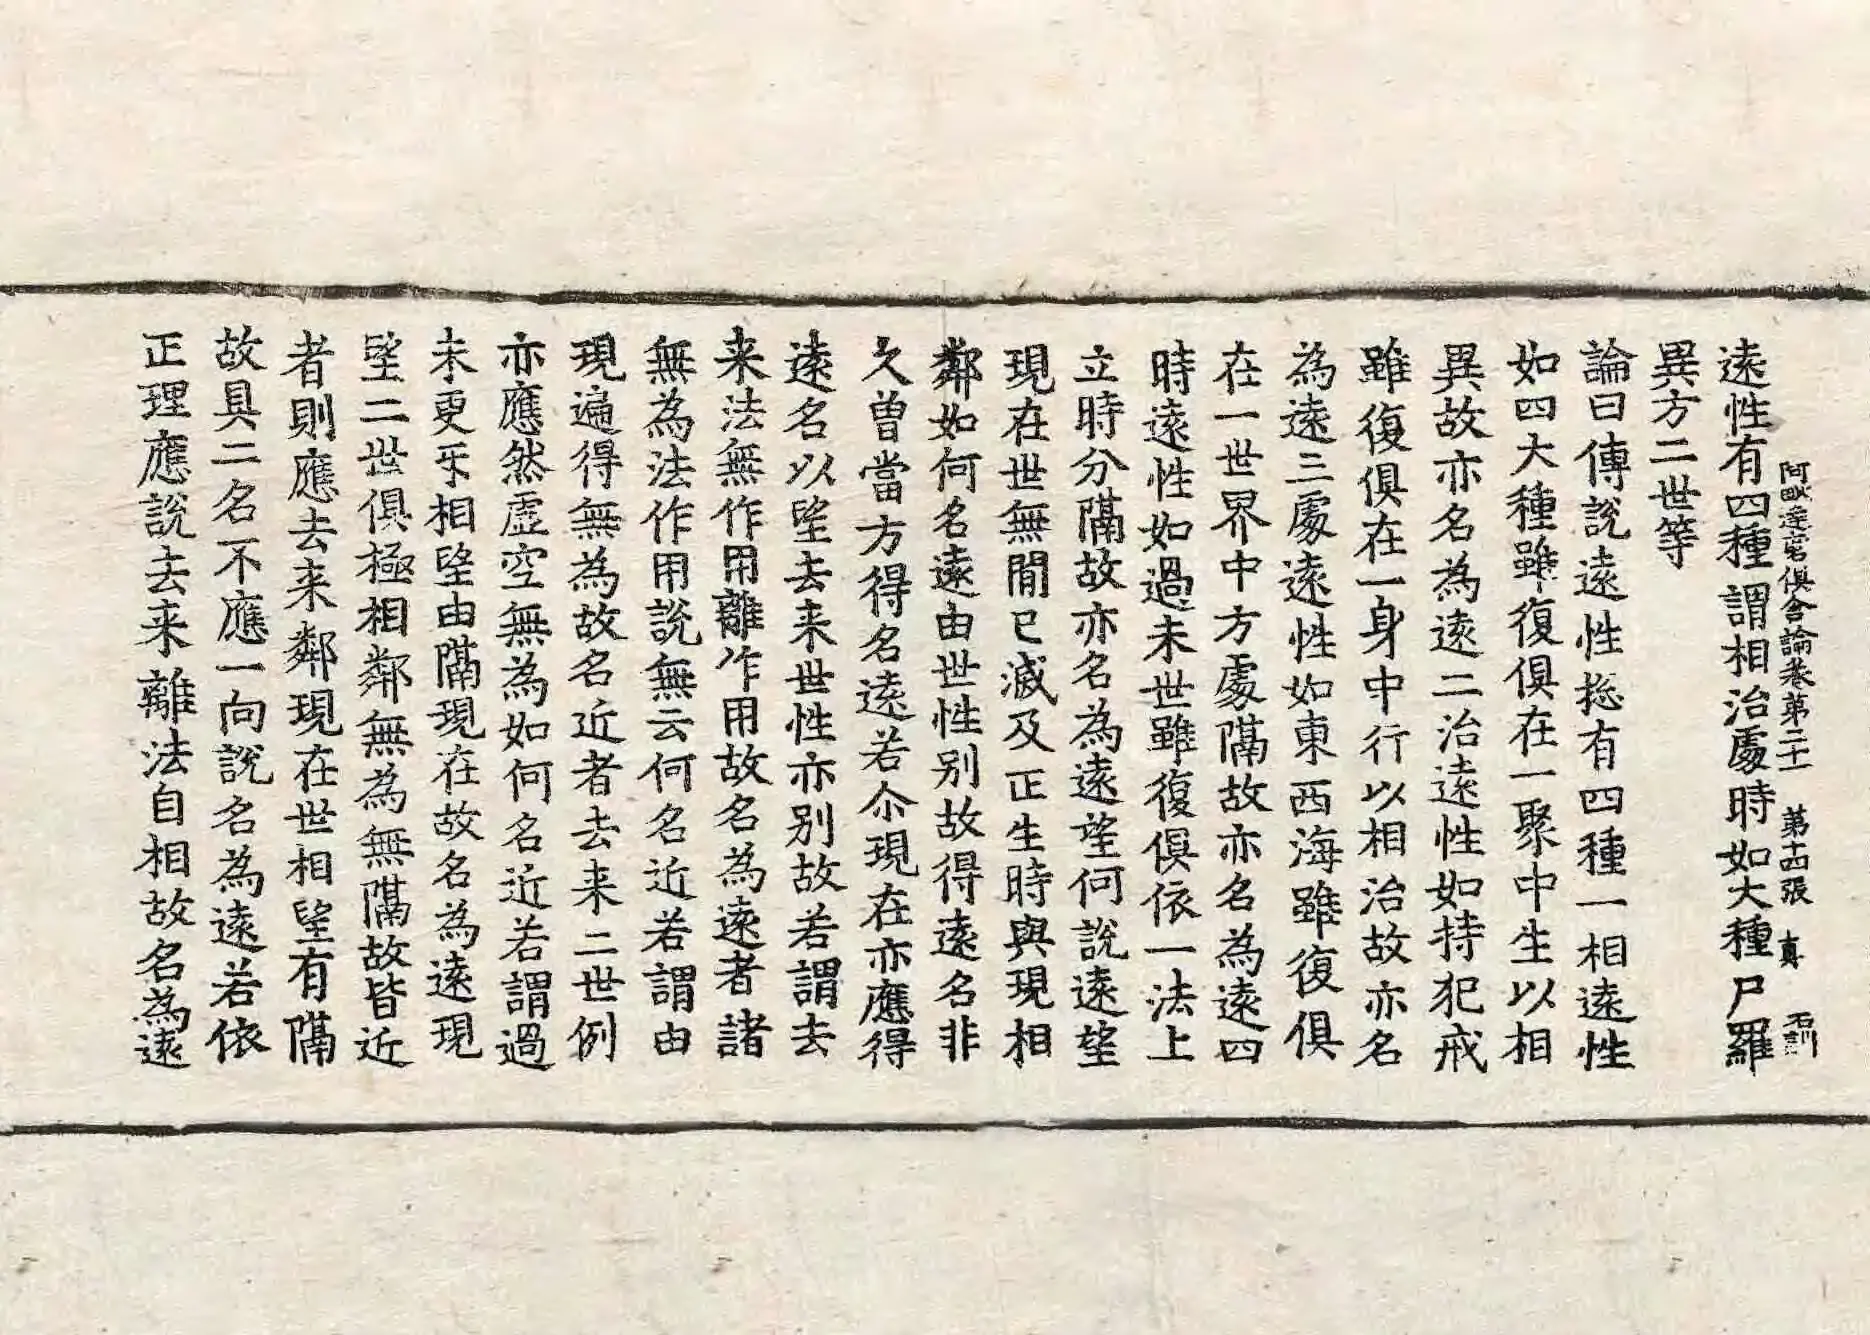 阿毗達磨俱舍論卷第二十一 第十四張 真 石訓
遠性有四種謂相治處時如大種尸羅
異方二世等
論曰傳說遠性捴有四種一相遠性
如四大種雖復俱在一聚中生以相
異故亦名為遠二治遠性如持犯戒
雖復俱在一身中行以相治故亦名
為遠三處遠性如東西海雖復俱
在一世界中方處隔故亦名為遠四
時遠性如過未世雖復俱依一法上
立時分隔故亦名為遠望何說遠望
現在世無間已滅及正生時與現相
鄰如何名遠由世性別故得遠名非
久曾當方得名遠若尒現在亦應得
遠名以望去来世性亦別故若謂去
来法無作用離作用故名為遠者諸
無為法作用說無云何名近若謂由
現遍得無為故名近者去来二世例
亦應然虛空無為如何名近若謂過
未更㸦相望由隔現在故名為遠現
望二世俱極相鄰無為無隔故皆近
者則應去来鄰現在世相望有隔
故具二名不應一向說名為遠若依
正理應說去来離法自相故名為遠